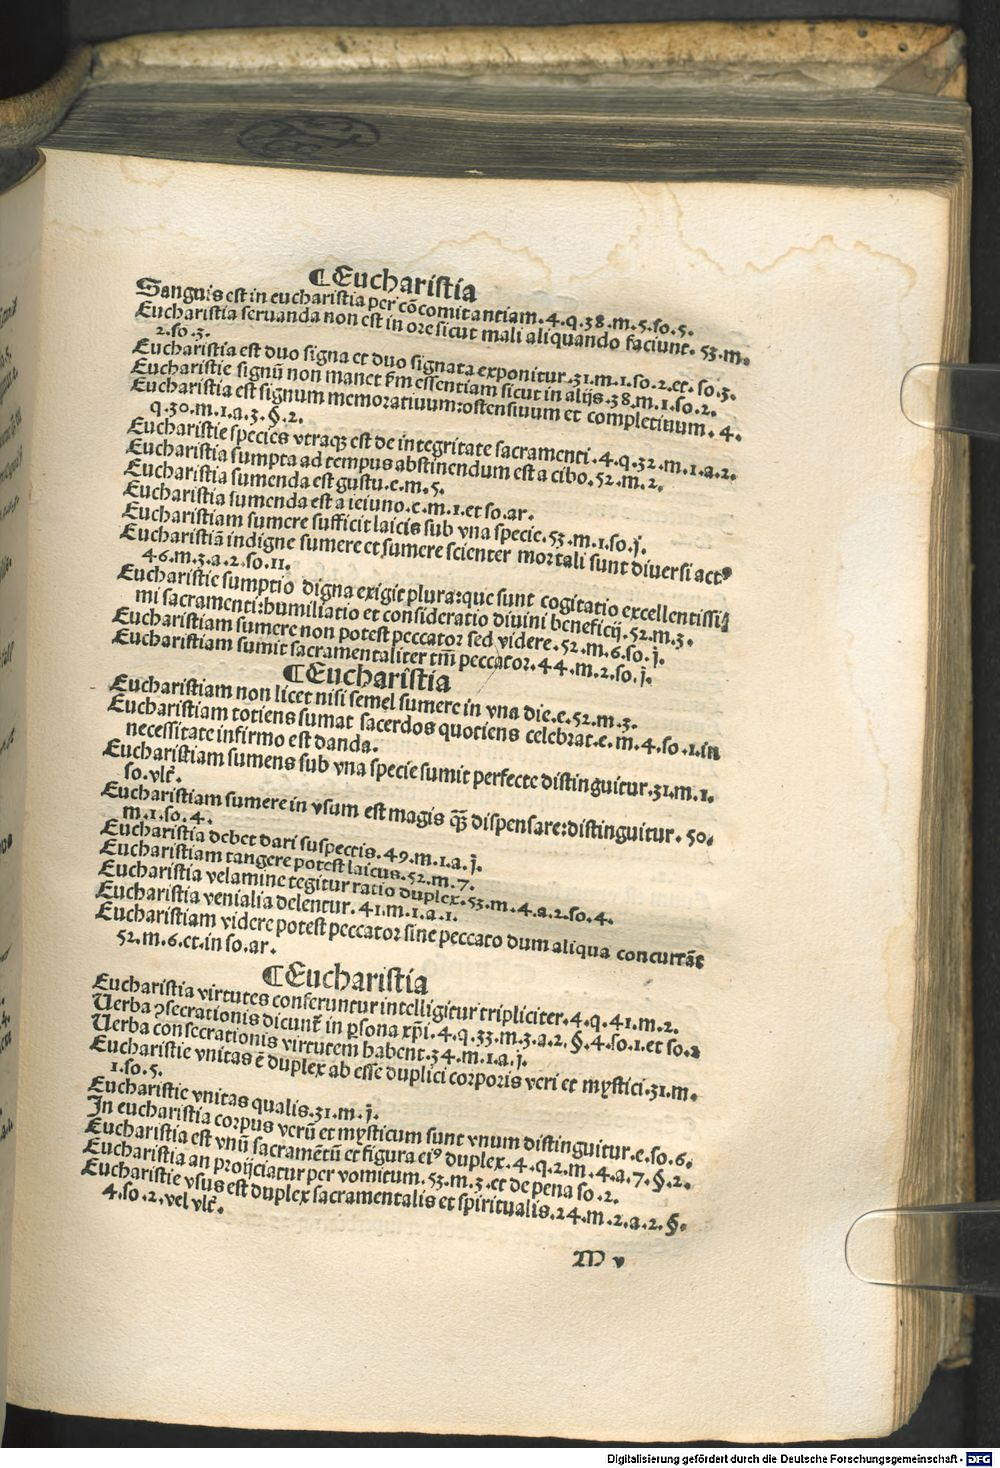 ¶Eucharistia
Sanguis est in eucharistia per cōcomitantiam.4.q.38.m.5.so.5.
Eucharistia seruanda non est in ore sicut mali aliquando faciunt. 53.m.
2.so.3.
Eucharistia est duo signa et duo signata exponitur.31.m.1.so.2.et.so.3.
Eucharistie signū non manet ẜm essentiam sicut in alijs.38.m.1.so.2.
Eucharistia est signum memoratiuum:ostensiuum et completiuum.4.
q.30.m.1.a.3.§.2.
Eucharistie species vtraqꝫ est de integritate sacramenti.4.q.32.m.1.a.2.
Eucharistia sumpta ad tempus abstinendum est a cibo.52.m.2.
Eucharistia sumenda est gustu.e.m.5.
Eucharistia sumenda est a ieiuno.e.m.1.et so.ar.
Eucharistiam sumere sufficit laicis sub vna specie.53.m.1.so.j.
Eucharistiā indigne sumere et sumere scienter mortali sunt diuersi actꝰ
46.m.3.a.2.so.11.
Eucharistie sumptio digna exigit plura:que sunt cogitatio excellentissi⸗
mi sacramenti:humiliatio et consideratio diuini beneficij.52.m.3.
Eucharistiam sumere non potest peccator sed videre.52.m.6.so.j.
Eucharistiam sumit sacramentaliter tm̄ peccator.44.m.2.so.j.
¶Eucharistia
Eucharistiam non licet nisi semel sumere in vna die.e.52.m.3.
Eucharistiam totiens sumat sacerdos quotiens celebrat.e.m.4.so.1.in
necessitate infirmo est danda.
Eucharistiam sumens sub vna specie sumit perfecte distinguitur.31.m.1.
so.vlt̄.
Eucharistiam sumere in vsum est magis qꝫ̄ dispensare:distinguitur.50.
m.1.so.4.
Eucharistia debet dari suspectis.49.m.1.a.j.
Eucharistiam tangere potest laicus.52.m.7.
Eucharistia velamine tegitur ratio duplex.53.m.4.a.2.so.4.
Eucharistia venialia delentur.41.m.1.a.1.
Eucharistiam videre potest peccator sine peccato dum aliqua concurrāt
52.m.6.et.in so.ar.
¶Eucharistia
Eucharistia virtutes conferuntur intelligitur tripliciter.4.q.41.m.2.
Uerba ꝯsecrationis dicunt̄ in ꝑsona xp̄i.4.q.33.m.3.a.2.§.4.so.1.et so.2
Uerba consecrationis virtutem habent.34.m.1.a.j.
Eucharistie vnitas ē duplex ab esse duplici corporis veri et mystici.31.m.
1.so.5.
Eucharistie vnitas qualis.31.m.j.
In eucharistia corpus verū et mysticum sunt vnum distinguitur.e.so.6.
Eucharistia est vnū sacramētū et figura eiꝰ duplex.4.q.2.m.4.a.7.§.2.
Eucharistia an proijciatur per vomitum.53.m.3.et de pena so.2.
Eucharistie vsus est duplex sacramentalis et spiritualis.24.m.2.a.2.§.
4.so.2.vel vlt̄.
M v
Digitalisierung gefördert durch die Deutsche Forschungsgemeinschaft - DFG